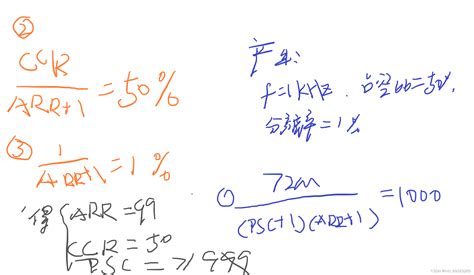 产生:
f=1kHz、占空比=50%、
分辨率=1%
① 72M / (PSC+1)(ARR+1) = 1000
② CCR / ARR+1 = 50%
③ 1 / ARR+1 = 1%
得 { ARR=99
CCR=50
PSC=719